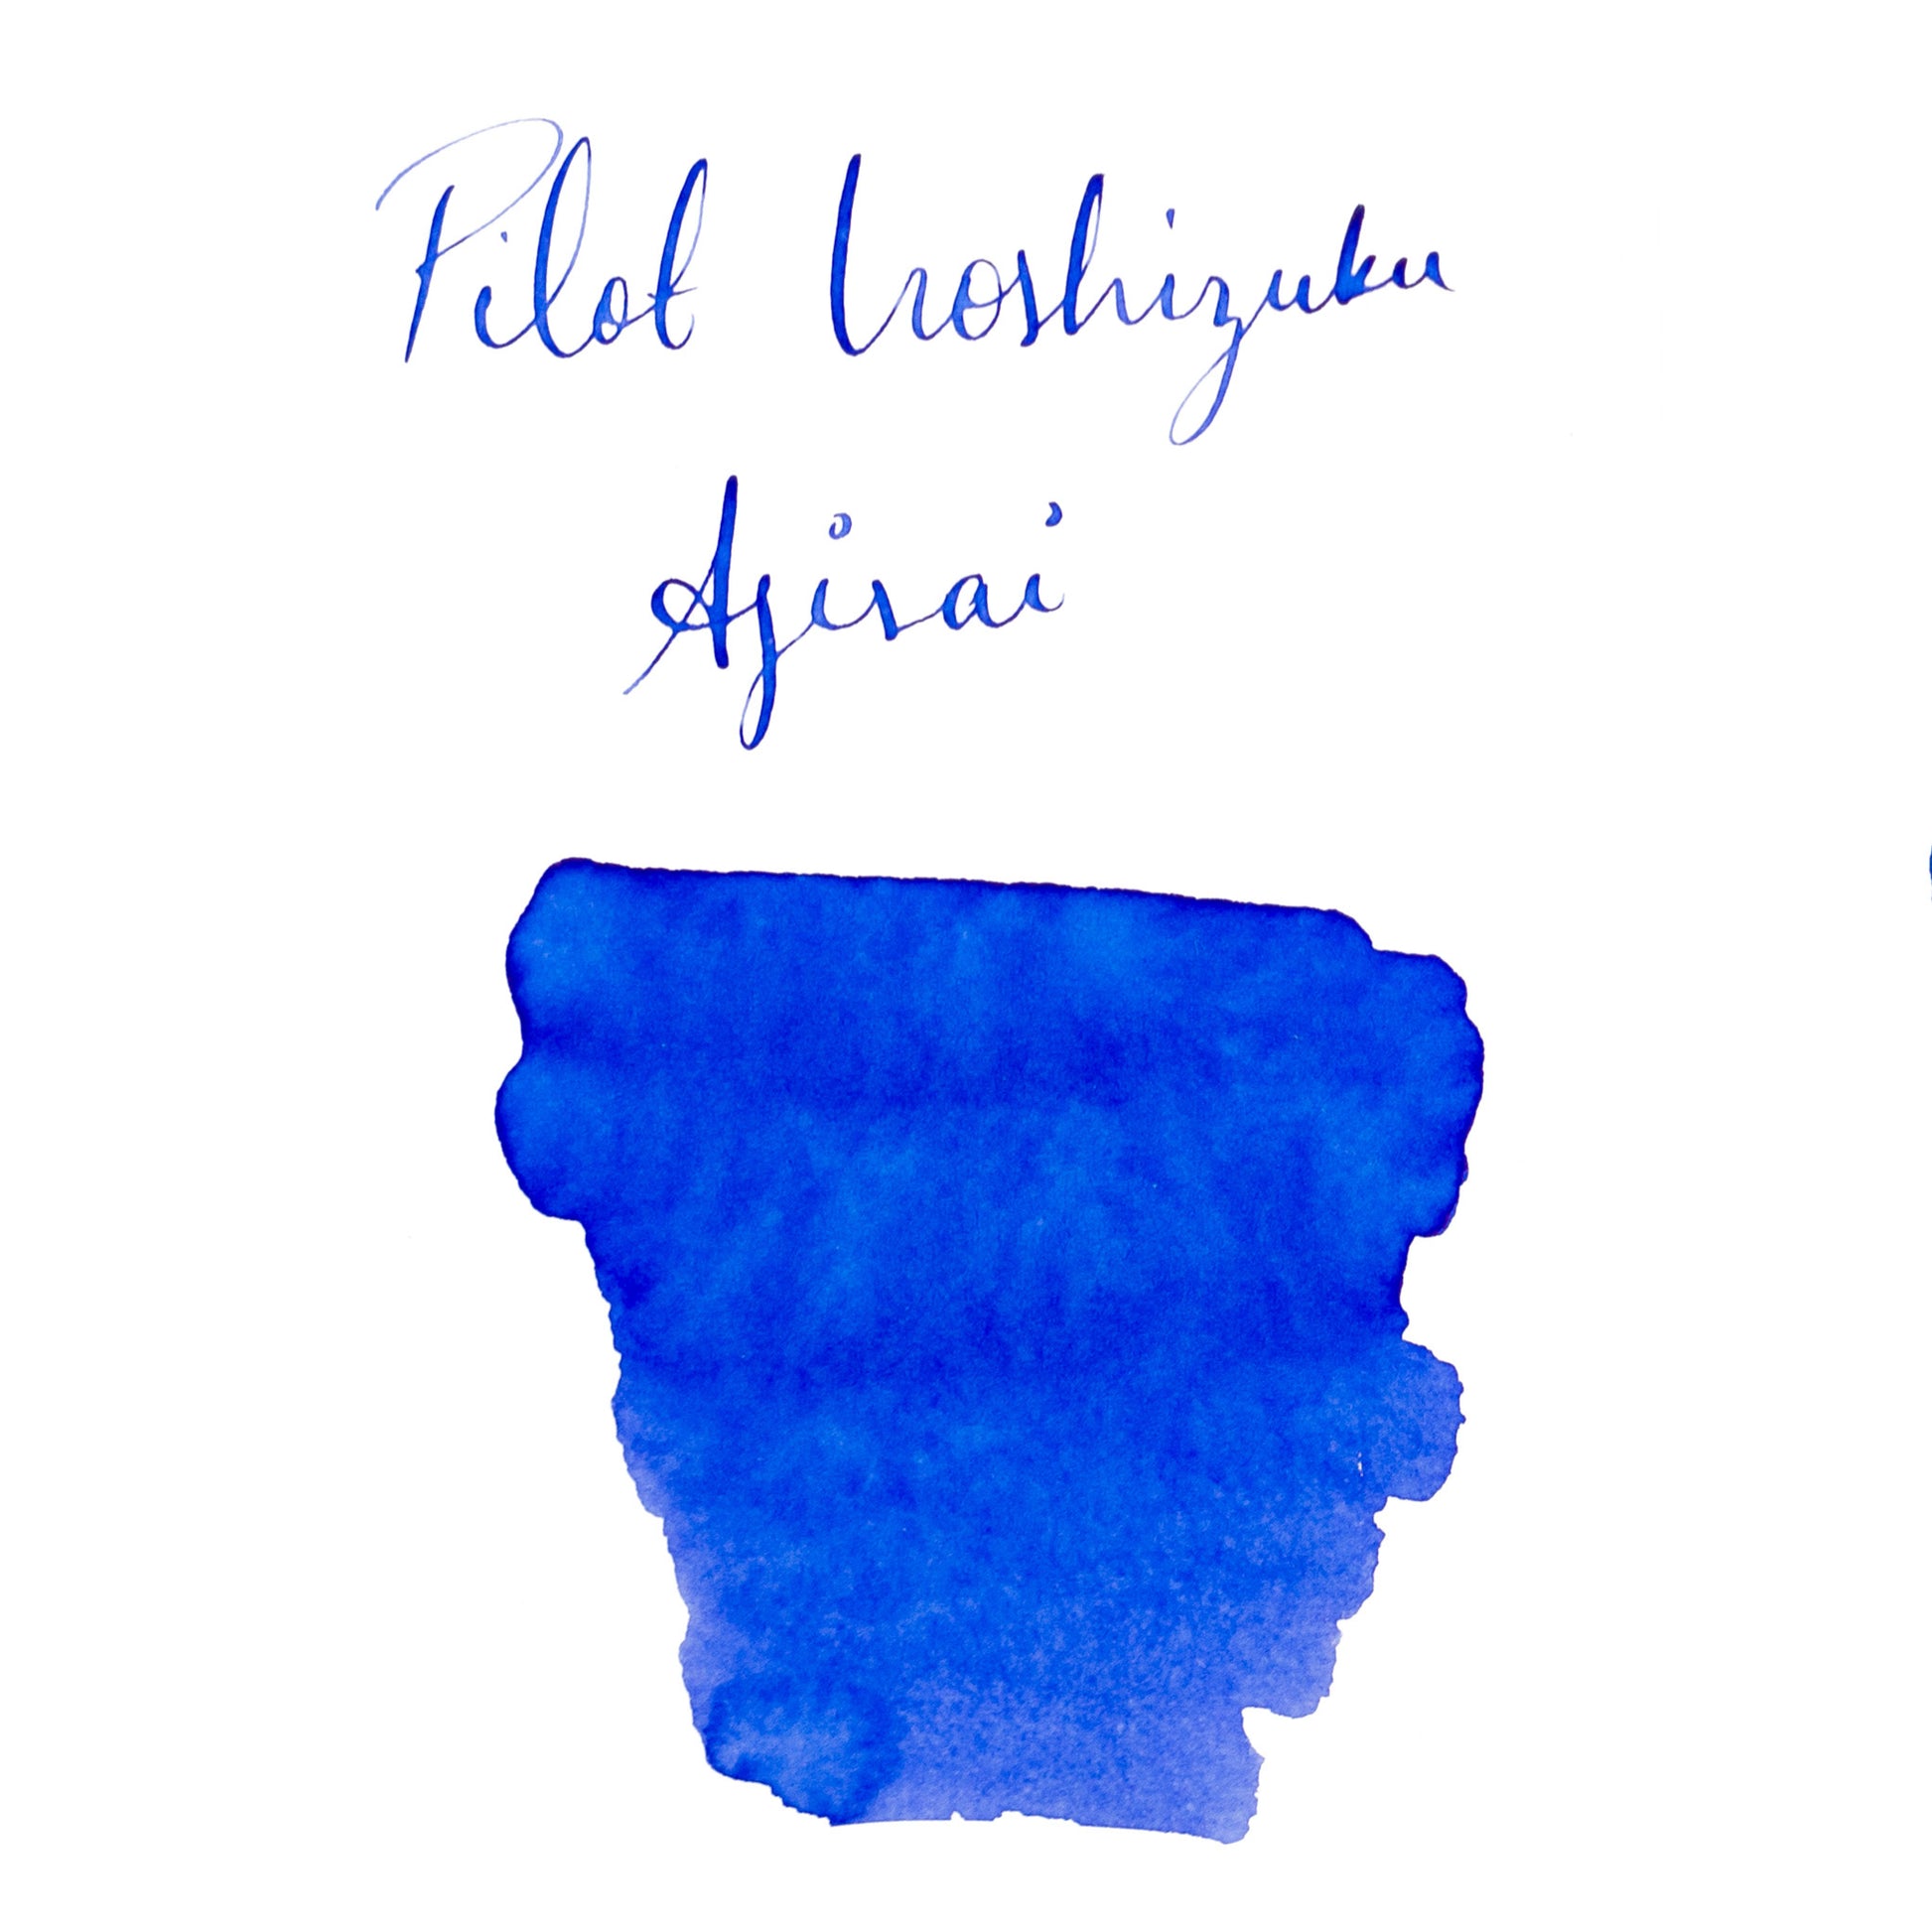 Pilot Iroshizuku
Ajisai